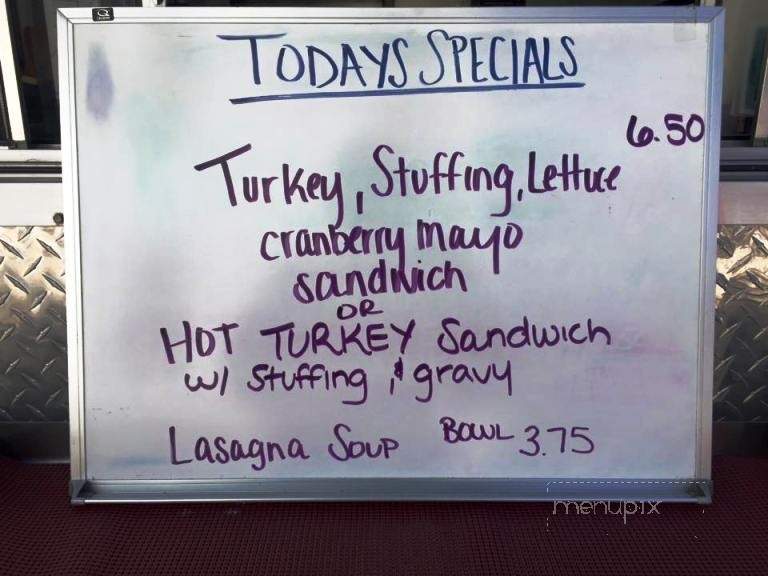 TODAYS SPECIALS
6.50
Turkey, Stuffing, Lettuce
cranberry mayo
sandwich
OR
HOT TURKEY Sandwich
w/ Stuffing & gravy
Lasagna Soup BOWL 3.75
menupix